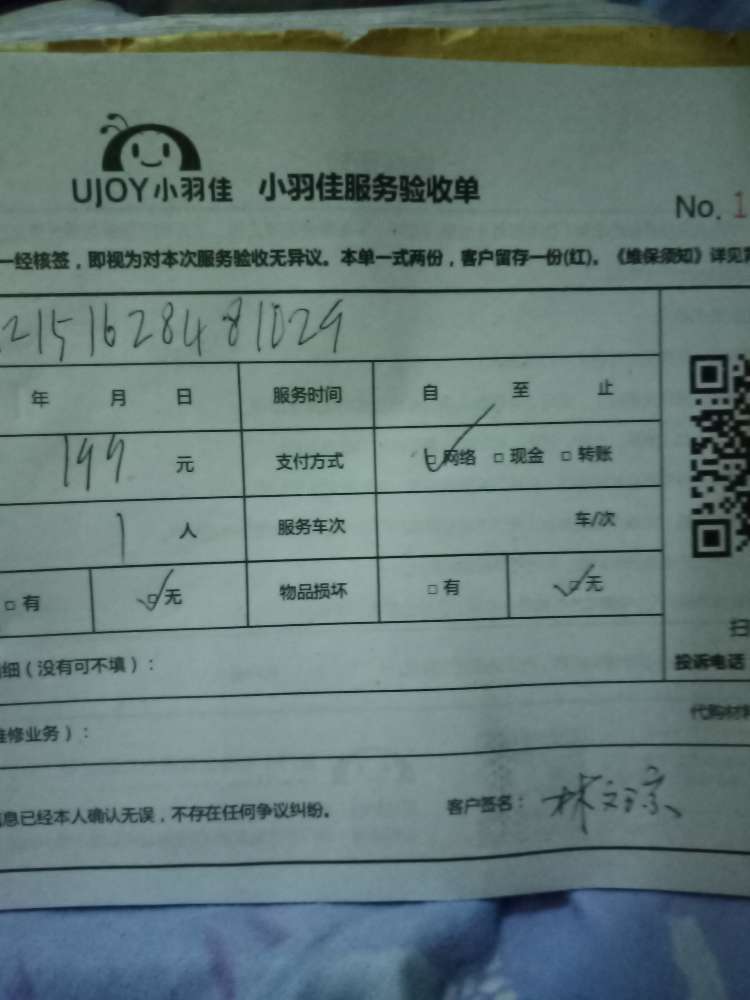 UJOY小羽佳 小羽佳服务验收单
No. 1
一经核签，即视为对本次服务验收无异议。本单一式两份，客户留存一份(红)。《维保须知》详见
21516284481029
年 月 日 服务时间 自 至 止
199 元 支付方式 □网络 □现金 □转账
1 人 服务车次 车/次
□有 □无 物品损坏 □有 □无
细（没有可不填）：
扫
投诉电话
代购材料
维修业务）：
息已经本人确认无误，不存在任何争议纠纷。 客户签名：